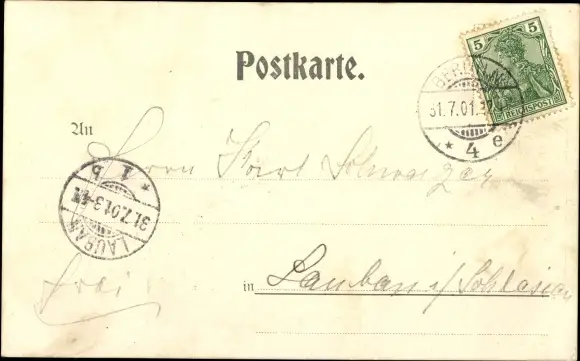 Postkarte.
5 5
REICHSPOST
BERLIN
31.7.01.
* 4 e
An
Herrn Karl
* 1 b
31.7.01.3-4N.
LAUBAN
frei
in Lauban i/Schlesien